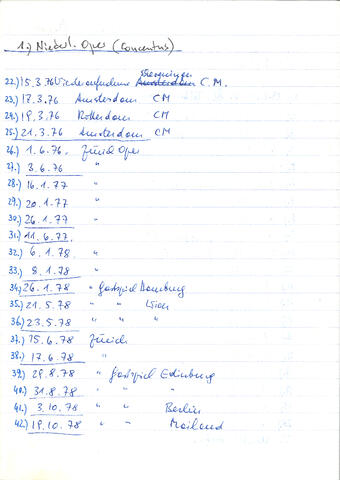 1.) Niederl. Oper (Concentus)
Scheveningen
22.) 15.3.76 Wiederaufnahme Amsterdam C.M.
23.) 17.3.76 Amsterdam CM
24.) 19.3.76 Rotterdam CM
25.) 21.3.76 Amsterdam CM
26.) 1.6.76. Zürich Oper
27.) 3.6.76 "
28.) 16.1.77 "
29.) 20.1.77 "
30.) 26.1.77 "
31.) 11.6.77. "
32.) 6.1.78 "
33.) 8.1.78 "
34.) 26.1.78 " Gastspiel Hamburg
35.) 21.5.78 " " Wien
36.) 23.5.78 " " "
37.) 15.6.78 Zürich
38.) 17.6.78 "
39.) 29.8.78 " Gastspiel Edinburg
40.) 31.8.78 " " "
41.) 3.10.78 " " Berlin
42.) 19.10.78 " " Mailand